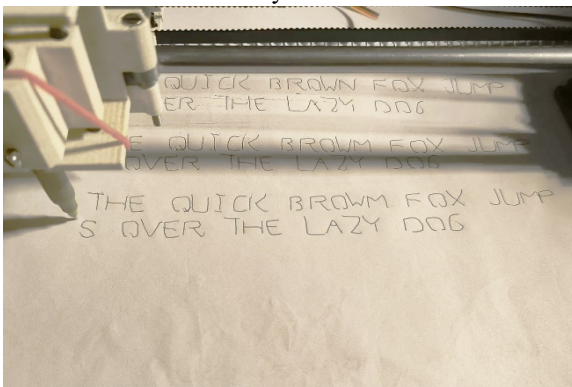 QUICK BROWN FOX JUMP
ER THE LAZY DOG
E QUICK BROWM FOX JUMP
OVER THE LAZY DOG
THE QUICK BROWM FOX JUMP
S OVER THE LAZY DOG